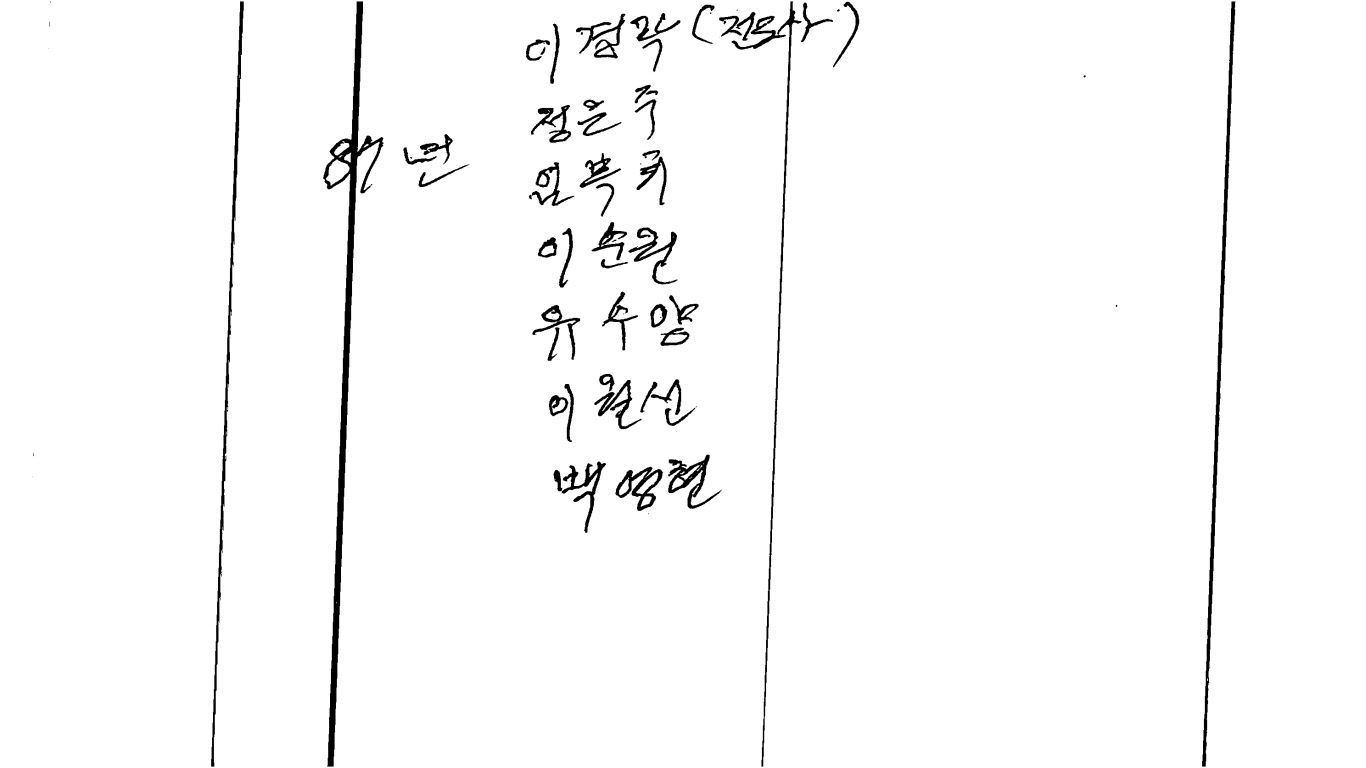 이경락 (전도사)
정은주
87년
이순원
유수양
이월선
백영현